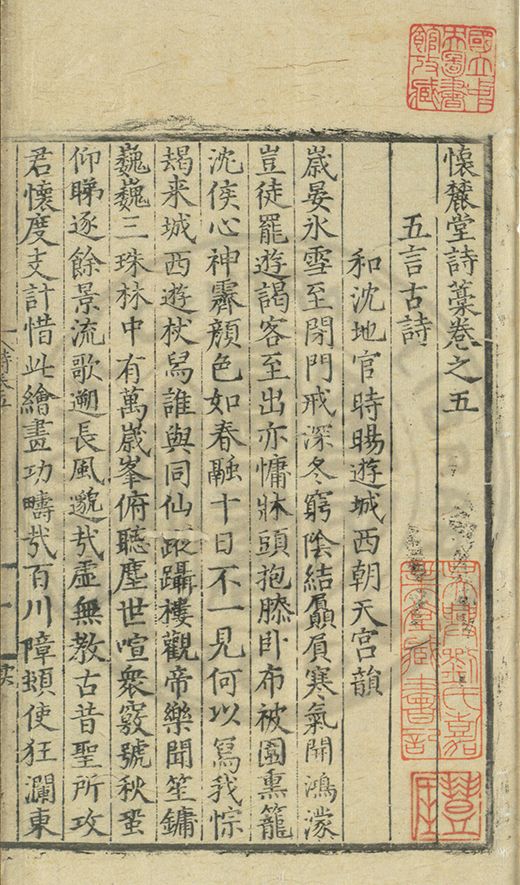 懷麓堂詩藁卷之五
五言古詩
和沈地官時暘遊城西朝天宮韻
歲晏氷雪至閉門戒深冬窮隂結贔屓寒氣開鴻濛
豈徒罷遊謁客至出亦慵牀頭抱膝卧布被圍熏籠
沈侯心神霽顔色如春融十日不一見何以寫我悰
朅来城西遊杖舄誰與同仙蹤躡樓觀帝樂聞笙鏞
巍巍三珠林中有萬歲峯俯聽塵世喧衆竅號秋蛩
仰睇逐餘景流歌遡長風邈㢤虛無教古昔聖所攻
君懷度支計惜此繪畫功疇㢤百川障頓使狂瀾東
國立中央圖書館攷藏